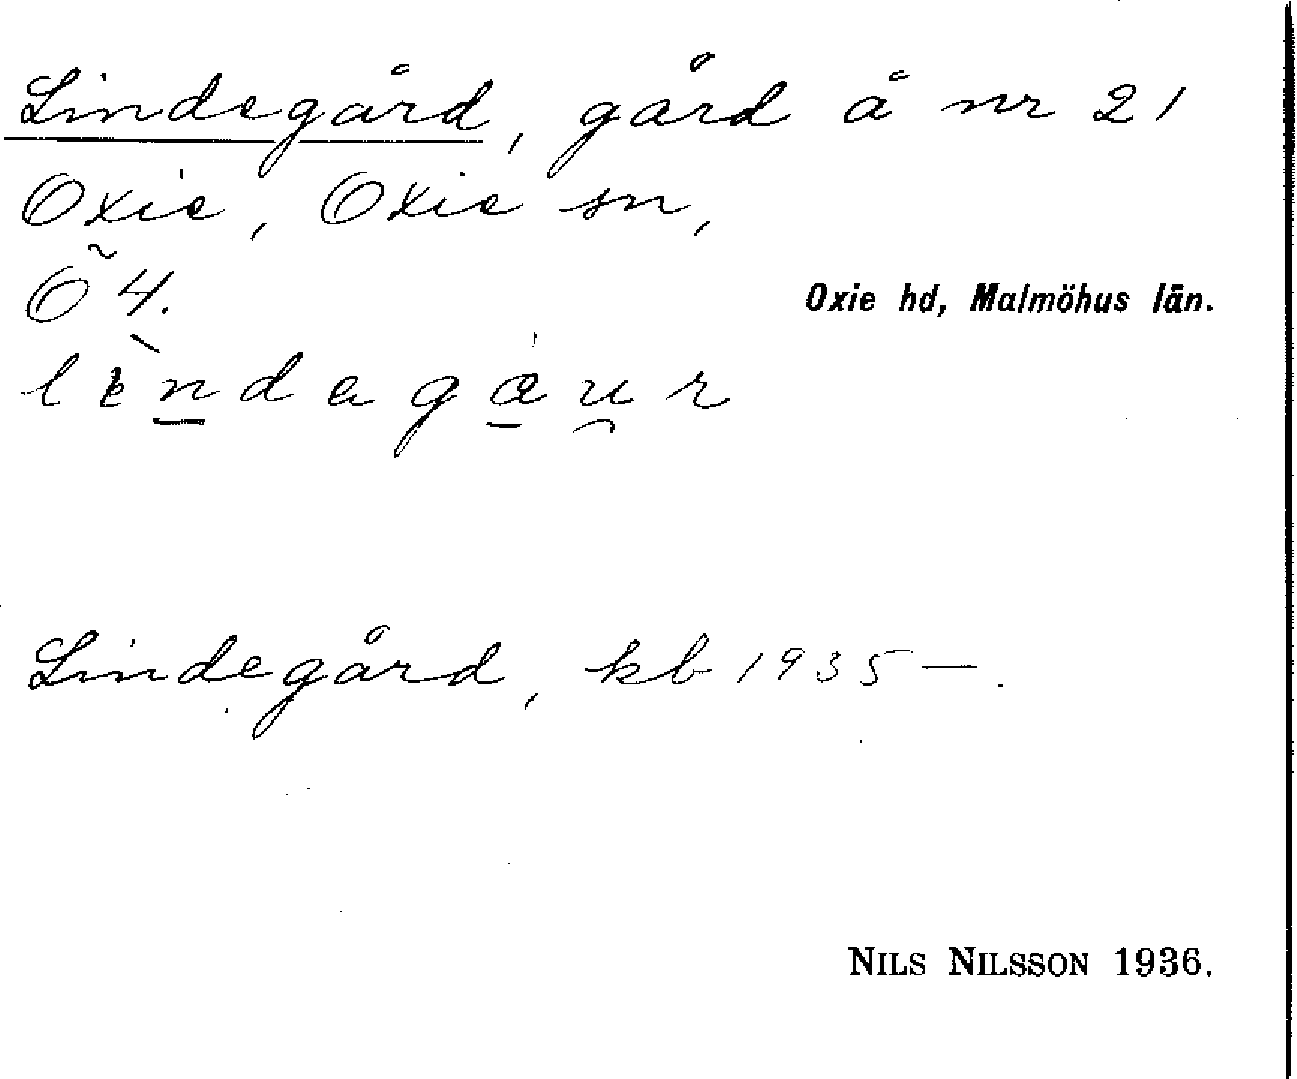 Lindegård, gård å nr 21
Oxie, Oxie sn,
Õ 4.
Oxie hd, Malmöhus län.
lèndagáur
Lindegård, kb 1935 —.
NILS NILSSON 1936.